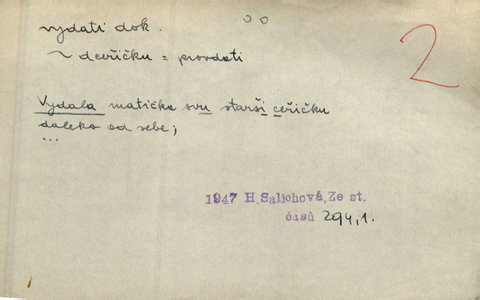 vydati dok.
2
~ dceřičku = provdati
Vydala matička svu starší ceřičku
daleko od sebe;
...
1947 H.Salichová, Ze st.
časů 294,1.